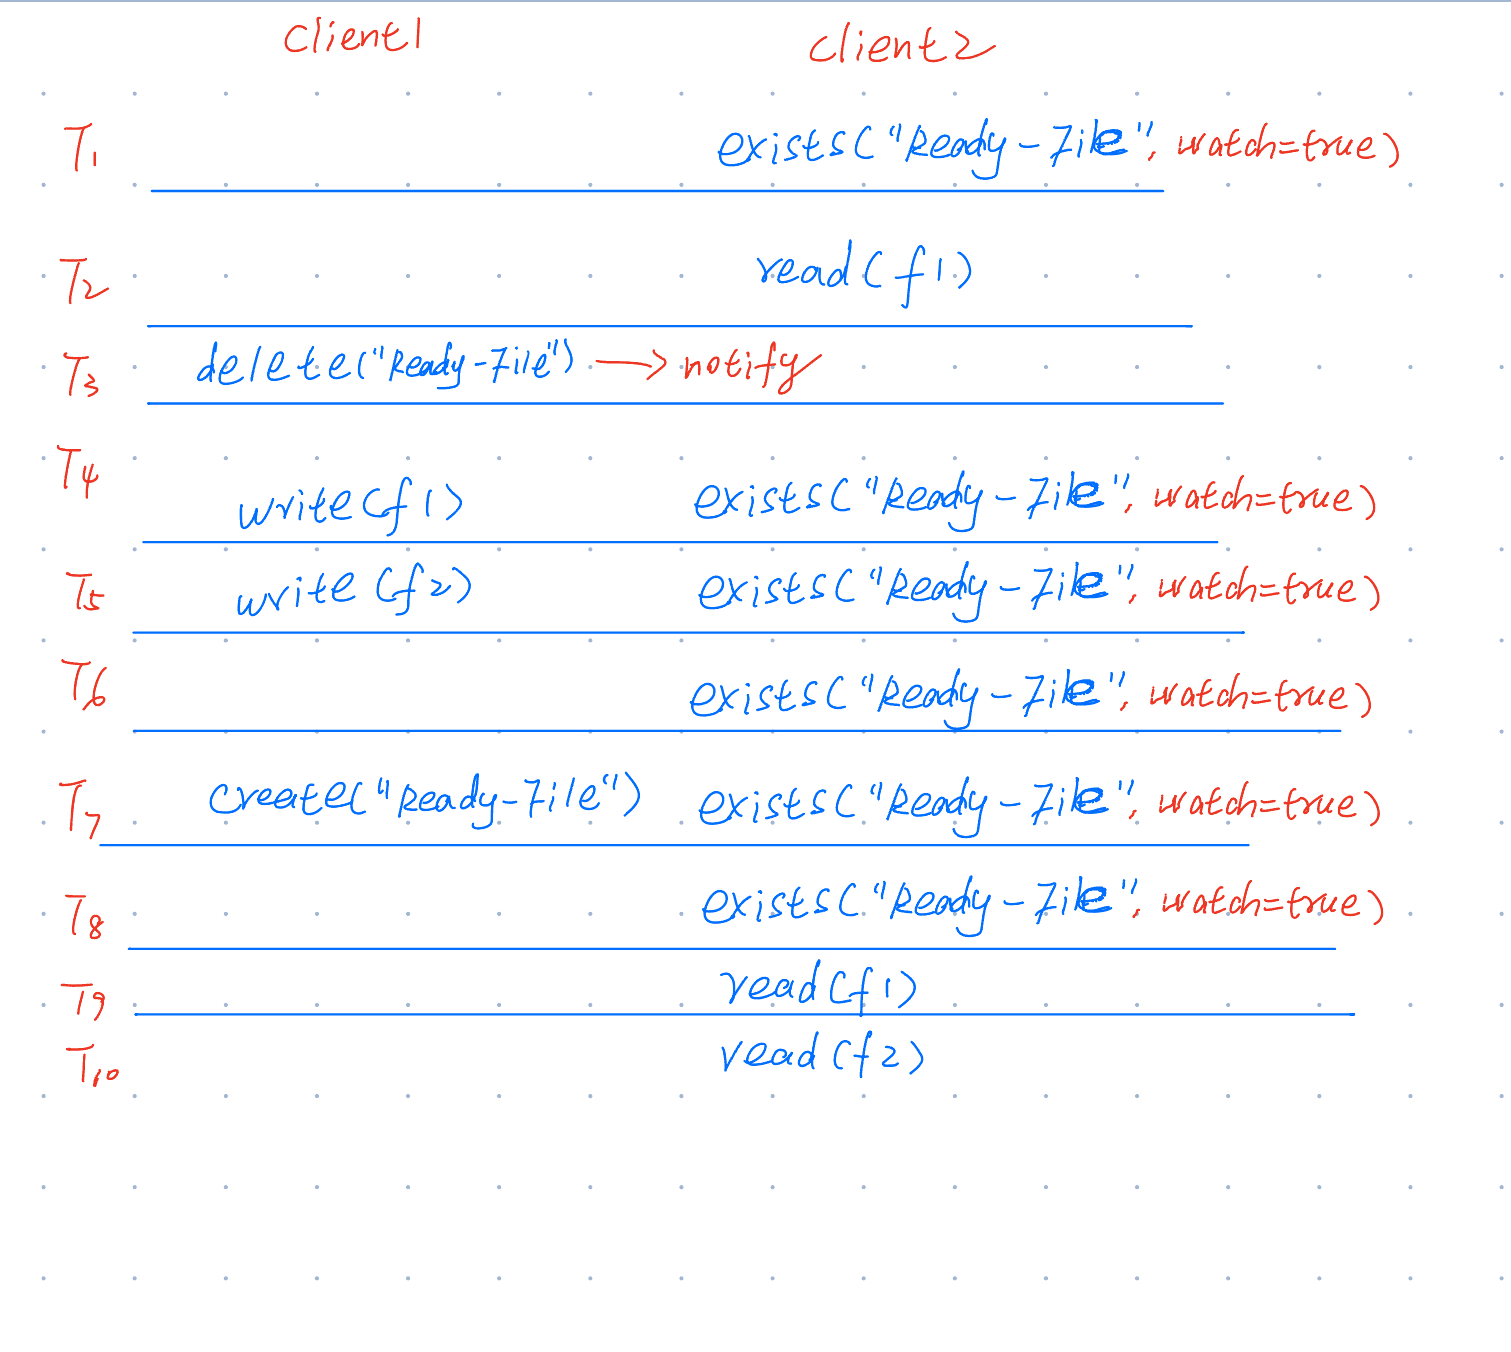 client1 client2
T1 exists("Ready-File", watch=true)
T2 read(f1)
T3 delete("Ready-File") → notify
T4 write(f1) exists("Ready-File", watch=true)
T5 write(f2) exists("Ready-File", watch=true)
T6 exists("Ready-File", watch=true)
T7 create("Ready-File") exists("Ready-File", watch=true)
T8 exists("Ready-File", watch=true)
T9 read(f1)
T10 read(f2)